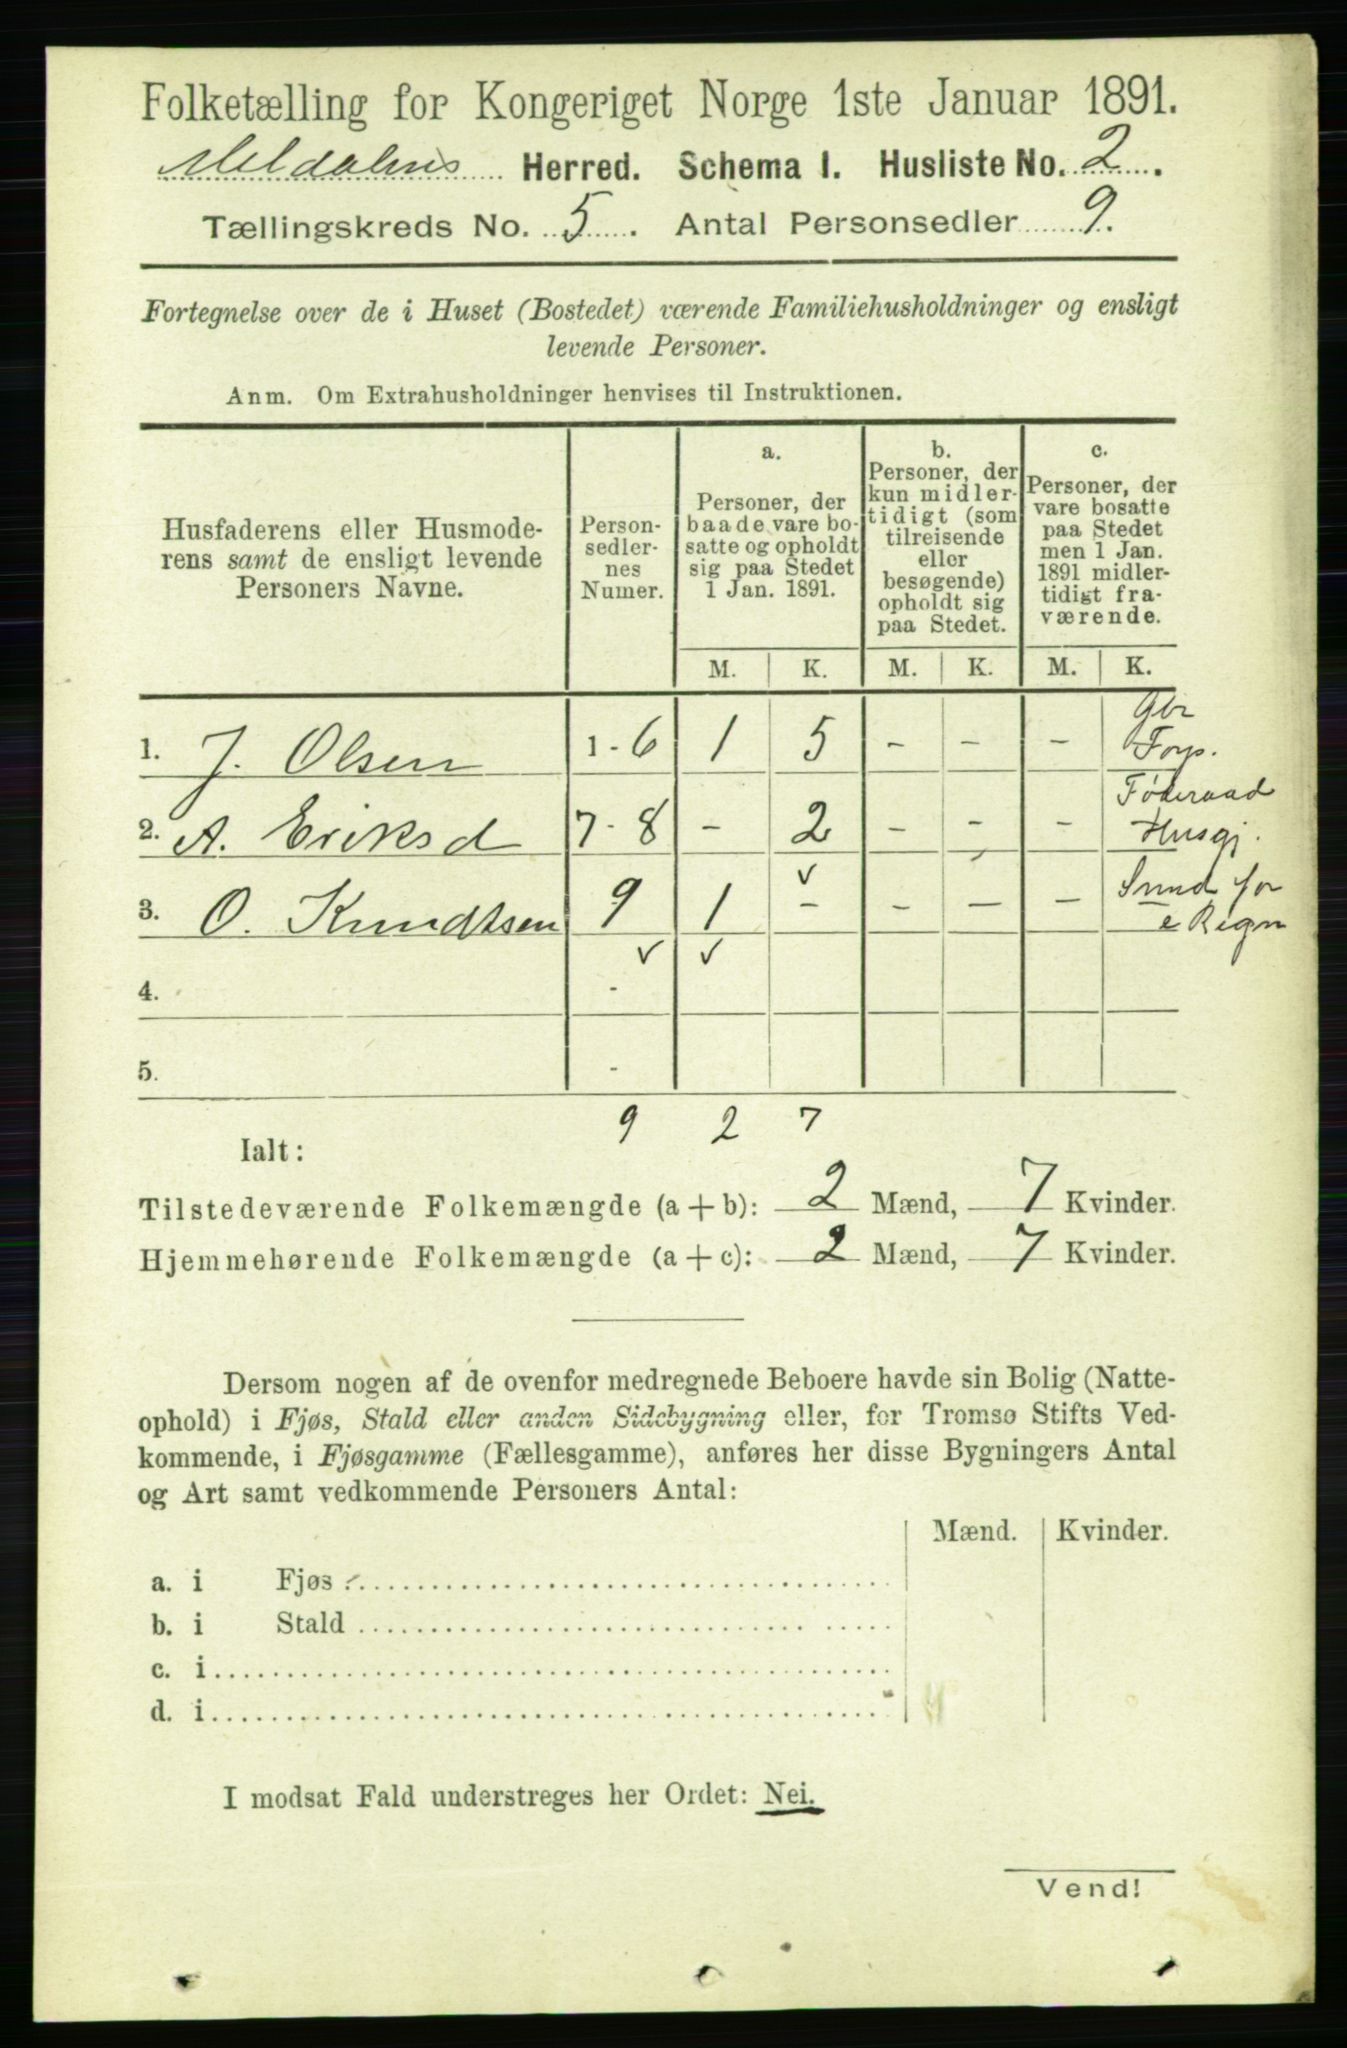 Folketælling for Kongeriget Norge 1ste Januar 1891.
Meldalens Herred. Schema I. Husliste No. 2.
Tællingskreds No. 5. Antal Personsedler 9.
Fortegnelse over de i Huset (Bostedet) værende Familiehusholdninger og ensligt
levende Personer.
Anm. Om Extrahusholdninger henvises til Instruktionen.
Husfaderens eller Husmode-
rens samt de ensligt levende
Personers Navne.
Person-
sedler-
nes
Numer.
a.
Personer, der
baade vare bo-
satte og opholdt
sig paa Stedet
1 Jan. 1891.
b.
Personer, der
kun midler-
tidigt (som
tilreisende
eller
besøgende)
opholdt sig
paa Stedet.
c.
Personer, der
vare bosatte
paa Stedet
men 1 Jan.
1891 midler-
tidigt fra-
værende.
M. K. M. K. M. K.
Gbr
1. J. Olsen 1 - 6 1 5 - - - Forp.
Føderaad
2. A. Eriksd 7 - 8 - 2 - - - Husgj.
Smed for
3. O. Knudtsen 9 1 - - - - e Regn
4. -
5. -
9 2 7
Ialt:
Tilstedeværende Folkemængde (a + b): 2 Mænd, 7 Kvinder.
Hjemmehørende Folkemængde (a + c): 2 Mænd, 7 Kvinder.
Dersom nogen af de ovenfor medregnede Beboere havde sin Bolig (Natte-
ophold) i Fjøs, Stald eller anden Sidebygning eller, for Tromsø Stifts Ved-
kommende, i Fjøsgamme (Fællesgamme), anføres her disse Bygningers Antal
og Art samt vedkommende Personers Antal:
Mænd. Kvinder.
a. i Fjøs
b. i Stald
c. i
d. i
I modsat Fald understreges her Ordet: Nei.
Vend!